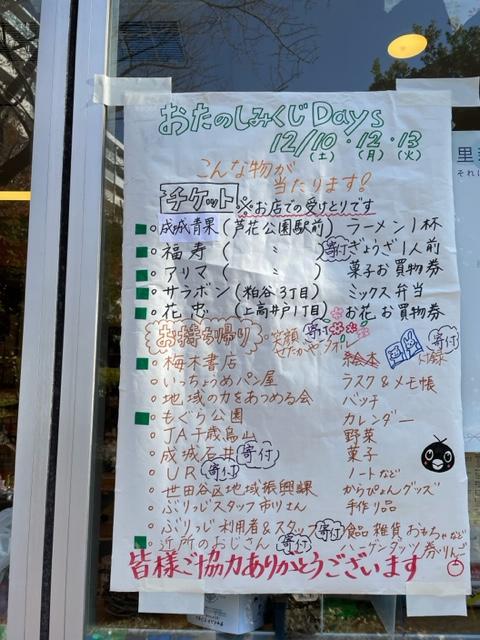 おたのしみくじDays
12/10・12・13
(土) (月) (火)
こんな物が
当たります!
チケット ※お店での受けとりです
。成城青果(芦花公園駅前) ラーメン1杯
。福寿( 〃 ) 寄付 ぎょうざ1人前
。アリマ( 〃 ) 菓子お買物券
。サラボン(粕谷3丁目) ミックス弁当
。花恋(上高井戸1丁目) お花お買物券
お持ち帰り 。笑顔せたがやタオル 寄付
。梅木書店 絵本 付録 寄付
。いっちょうめパン屋 ラスク&メモ帳
。地域の力をあつめる会 バッチ
。もぐら公園 カレンダー
。JA千歳烏山 野菜
。成城石井 寄付 菓子
。UR 寄付 ノートなど
。世田谷区地域振興課 からぴょんグッズ
。ぷりっじスタッフ市川さん 手作り品
。ぷりっじ利用者&スタッフ 寄付 食品 雑貨 おもちゃなど
。近所のおじさん 寄付 ゲンダッツ券 りんご
皆様ご協力ありがとうございます
里
それに